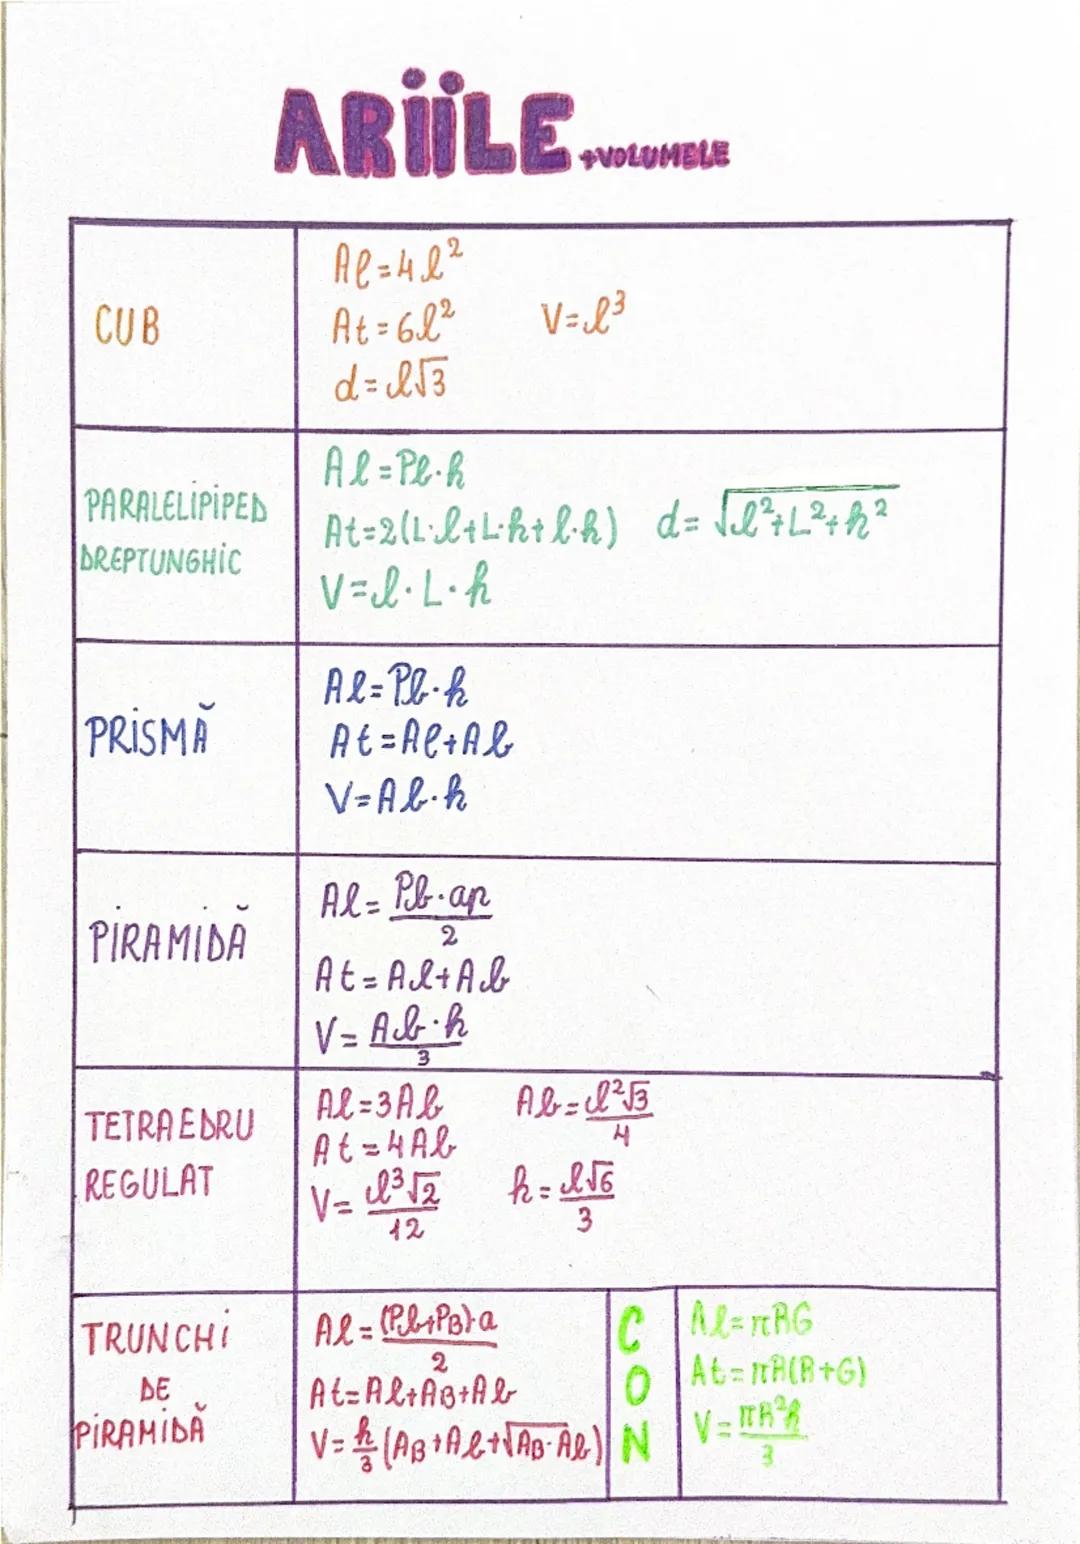 ARiiLE +VOLUMELE
CUB
Al=4l²
At=6l² V=l³
d=l√3
PARALELiPiPED
DREPTUNGHiC
Al=Pb·h
At=2(L·l+L·h+l·h) d=√(l²+L²+h²)
V=l·L·h
PRiSMĂ
Al=Pb·h
At=Al+Ab
V=Ab·h
PiRAMiDĂ
Al=Pb·ap/2
At=Al+Ab
V=Ab·h/3
TETRAEDRU
REGULAT
Al=3Ab Ab=l²√3/4
At=4Ab
V=l³√2/12 h=l√6/3
TRUNCHi
DE
PiRAMiDĂ
Al=(Pb+PB)·a/2
At=Al+AB+Ab
V=h/3(AB+Ab+√(AB·Ab))
CON
Al=πRG
At=πR(R+G)
V=πR²h/3